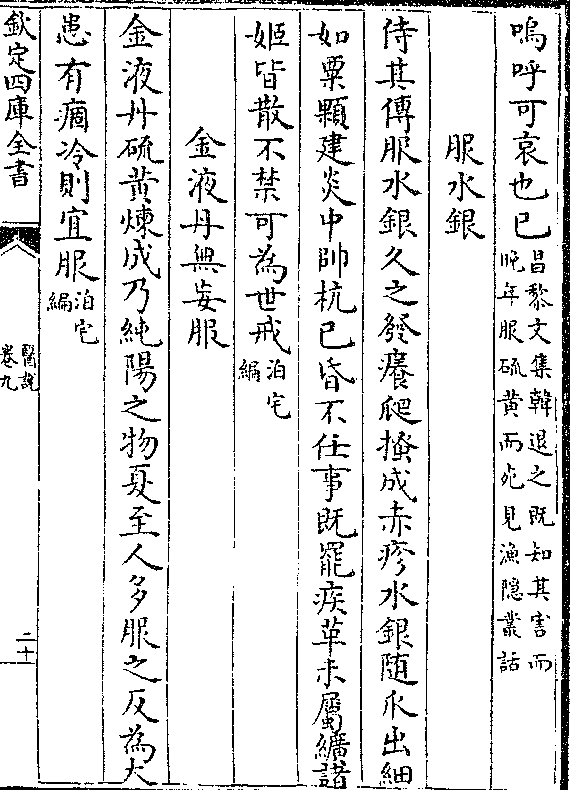 嗚呼可哀也已昌黎文集韓退之既知其害而
晚年服硫黄而死見漁隱叢話
服水銀
侍其傳服水銀久之發癢爬搔成赤疹水銀随爪出細
如粟顆建炎中帥杭已昏不任事既罷疾革未屬纊諸
姬皆散不禁可為世戒泊宅
編
金液丹無妄服
金液丹硫黄煉成乃純陽之物夏至人多服之反為大
患有痼冷則宜服泊宅
編
欽定四庫全書
醫說
卷九
二十